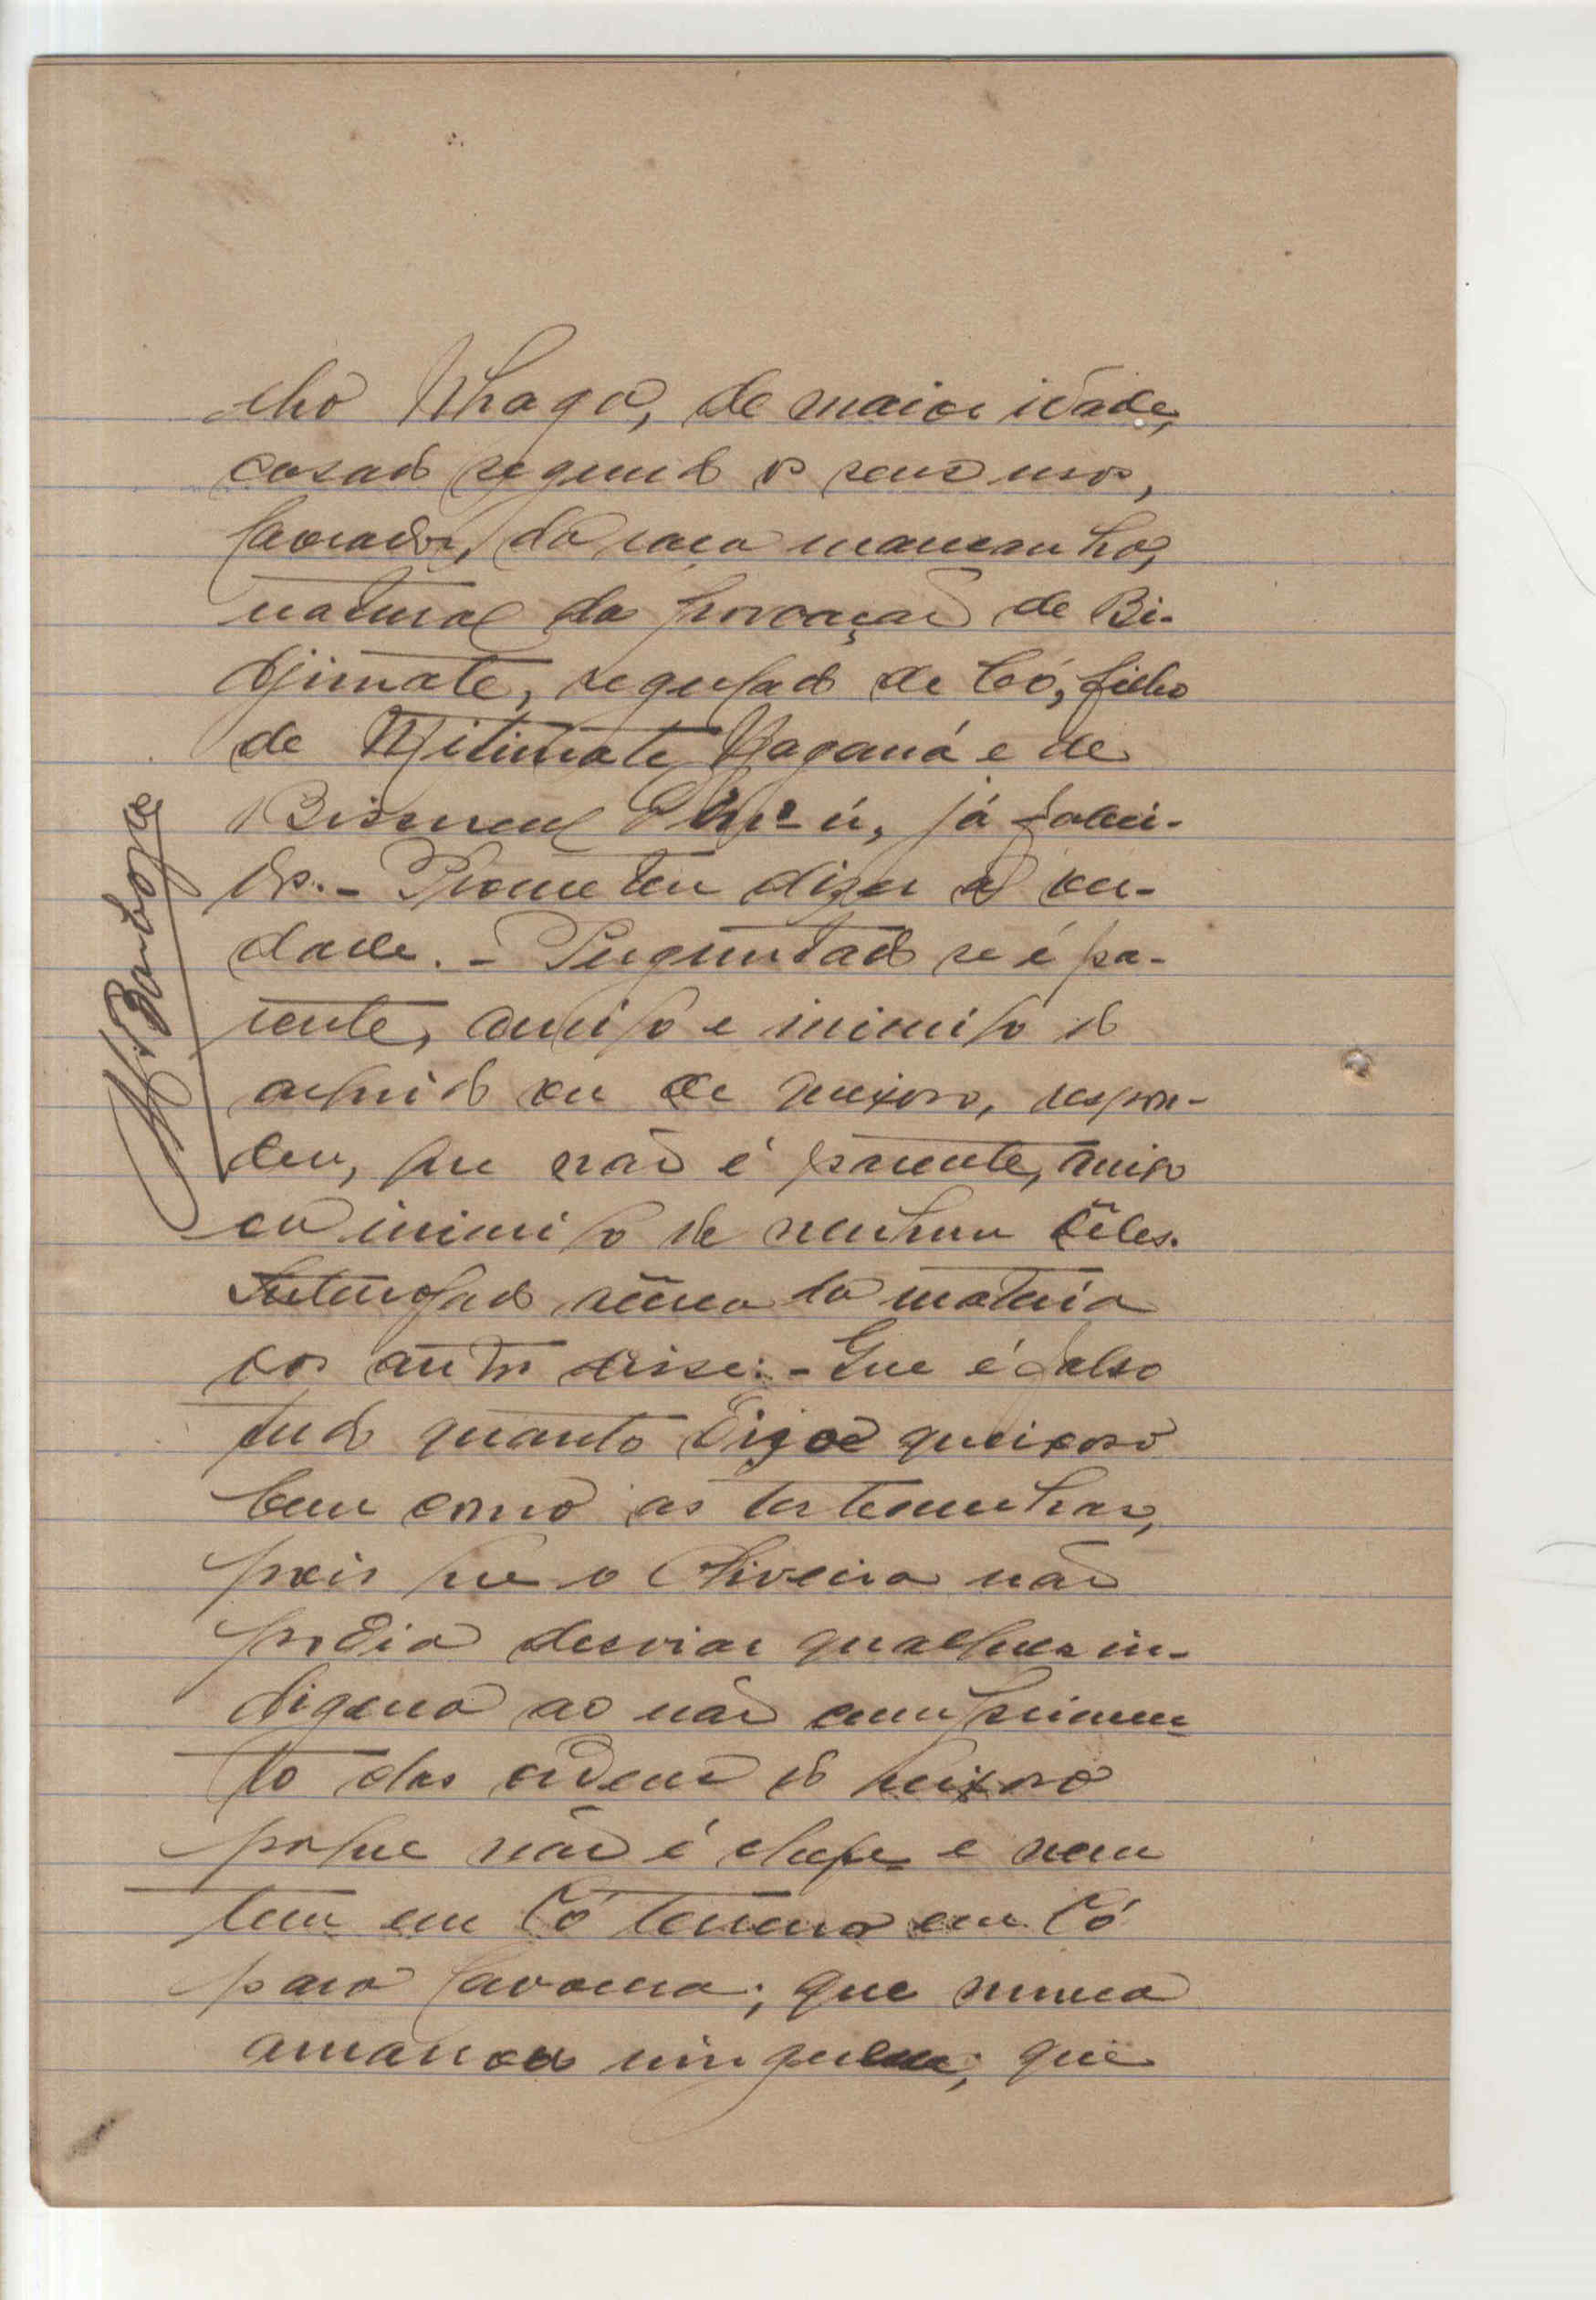 cho Nhaga, de maior idade,
casado segundo os seus usos,
lavrador, da raça mancanha,
natural da povoação de Bi-
djimate, regulado de Có, filho
de Njitimate Njaganá e de
Bismeul já faleci-
dos. - Prometeu dizer a ver-
dade. - Perguntado se é pa-
rente, amigo e inimigo do
arguido ou de queixoso, respon-
deu, que não é parente, amigo
ou inimigo de nenhum dêles.
Interrogado sôbre da matéria
dos autos disse: - Que é falso
tudo quanto diz o queixoso
bem como as testemunhas,
pois que o Oliveira não
podia desviar qualquer in-
digena ao não cumprimen-
to das ordens do queixoso
porque não é chefe e nem
tem em Có terreno em Có
para lavoura; que nunca
amarrou ninguem; que
M. Barbosa